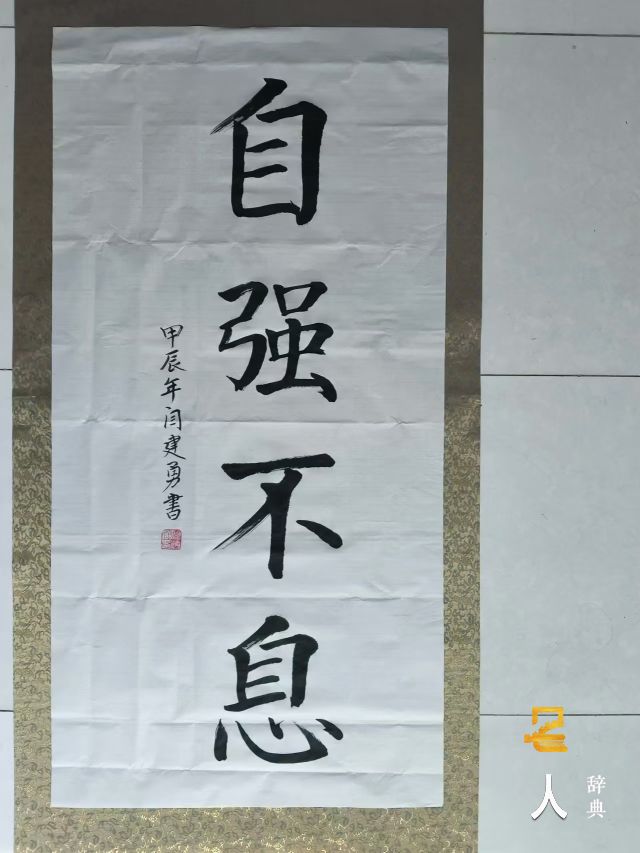 自强不息
甲辰年闫建勇書
名人
辞典